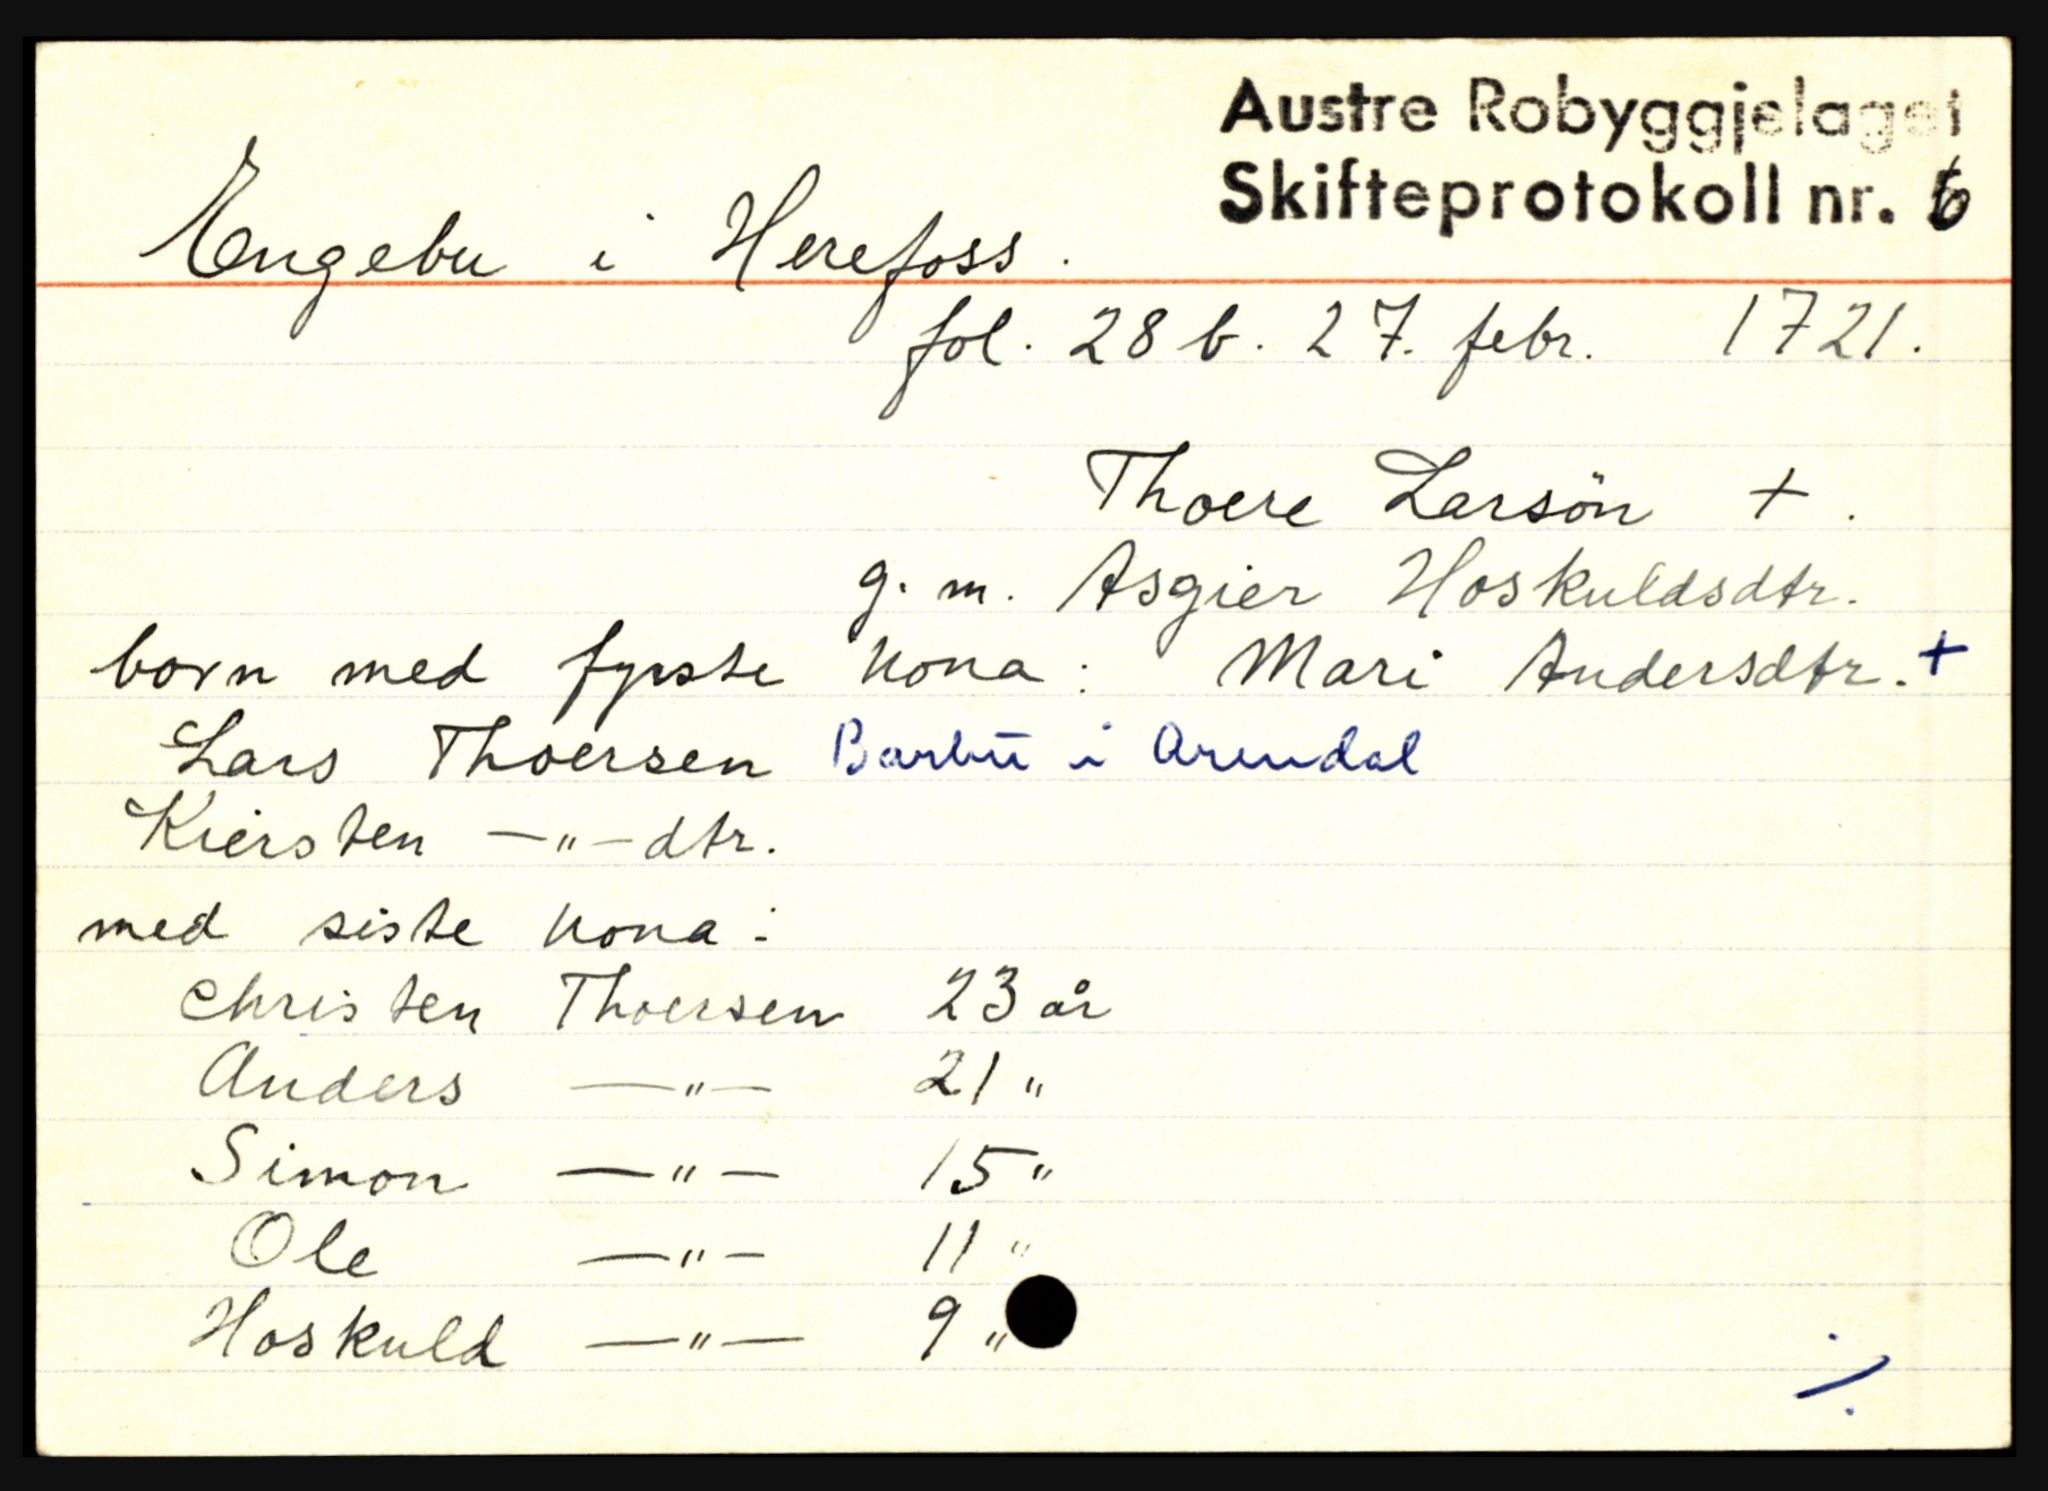 Austre Robyggjelaget
Skifteprotokoll nr. 6
Engebu i Herefoss.
fol. 28 b. 27. febr. 1721.
Thoere Larsön +.
g. m. Asgier Hoskuldsdtr.
born med fyrste kona: Mari Andersdtr. +
Lars Thoersen Barbu i Arendal
Kiersten —"— dtr.
med siste kona:
Christen Thoersen 23 år
Anders —"— 21 "
Simon —"— 15 "
Ole —"— 11 "
Hoskuld —"— 9 "
./.